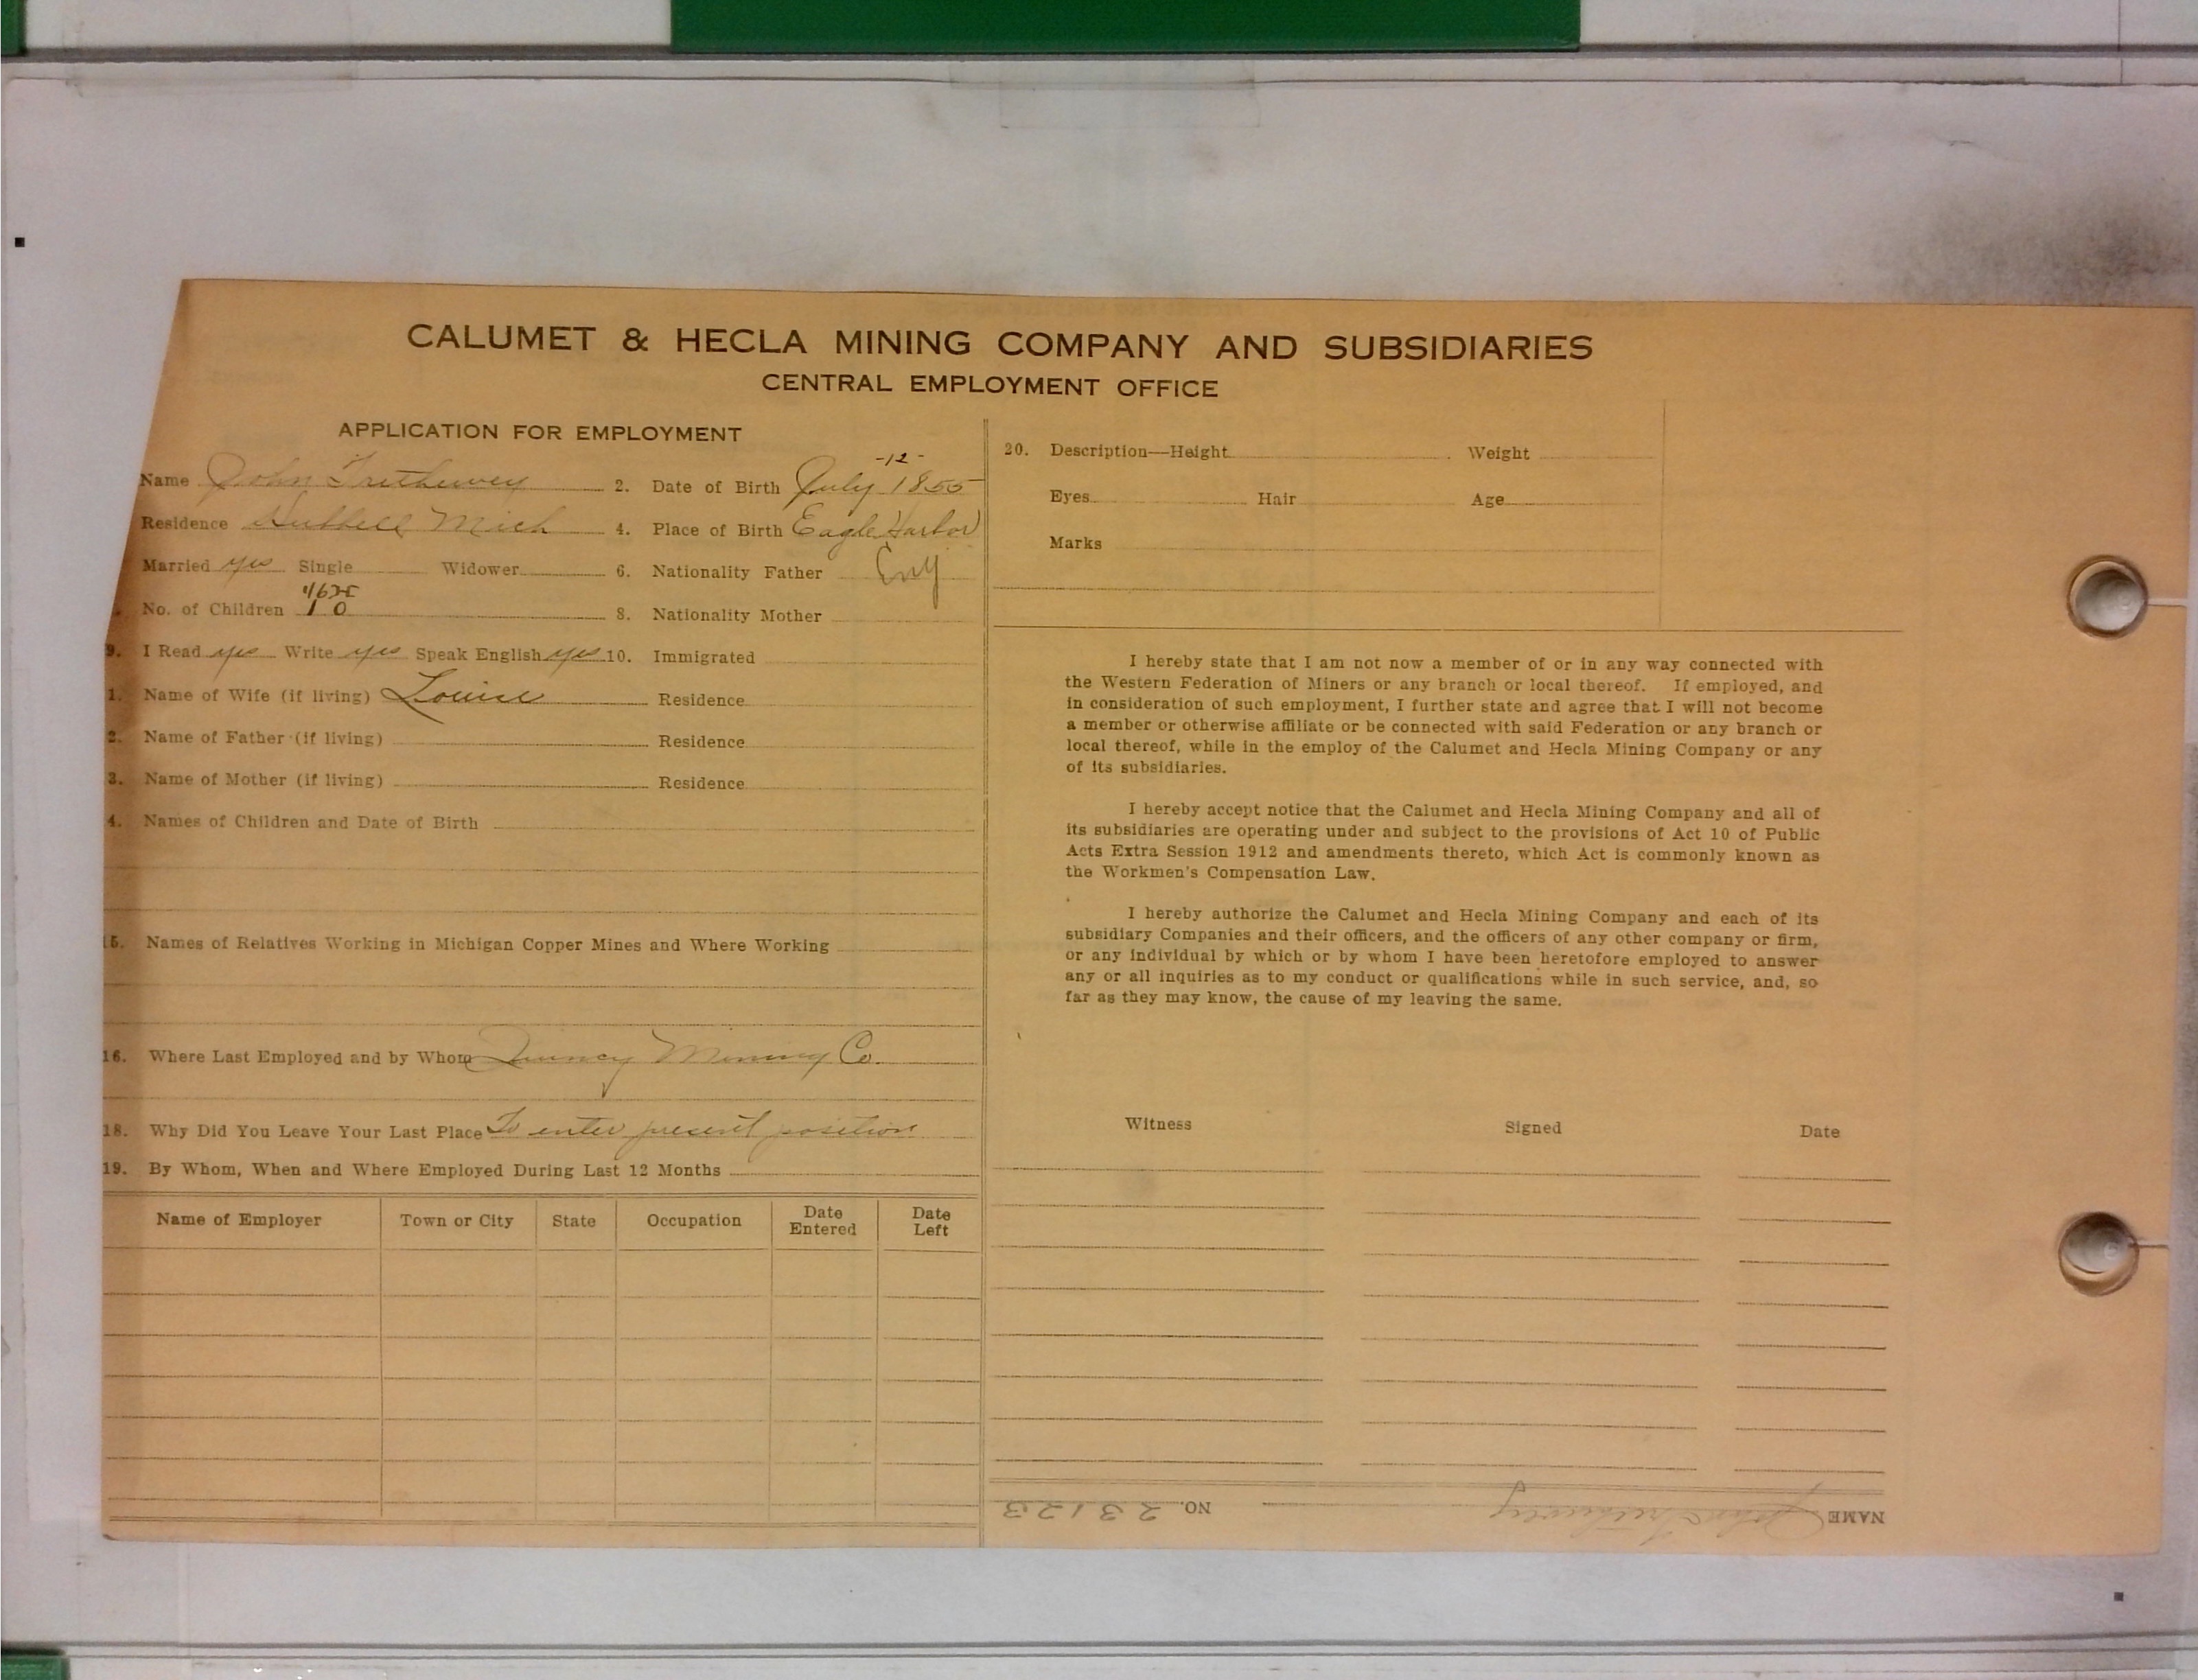 CALUMET & HECLA MINING COMPANY AND SUBSIDIARIES
CENTRAL EMPLOYMENT OFFICE
APPLICATION FOR EMPLOYMENT
Name John Trethewey 2. Date of Birth July -12- 1855
Residence Hubbell Mich 4. Place of Birth Eagle Harbor
Married yes Single Widower 6. Nationality Father Eng
No. of Children 10 8. Nationality Mother
9. I Read yes Write yes Speak English yes 10. Immigrated
1. Name of Wife (if living) Louise Residence
2. Name of Father (if living) Residence
3. Name of Mother (if living) Residence
4. Names of Children and Date of Birth
15. Names of Relatives Working in Michigan Copper Mines and Where Working
16. Where Last Employed and by Whom Quincy Mining Co.
18. Why Did You Leave Your Last Place To enter present position
19. By Whom, When and Where Employed During Last 12 Months
Name of Employer Town or City State Occupation Date Entered Date Left
20. Description—Height Weight
Eyes Hair Age
Marks
I hereby state that I am not now a member of or in any way connected with
the Western Federation of Miners or any branch or local thereof. If employed, and
in consideration of such employment, I further state and agree that I will not become
a member or otherwise affiliate or be connected with said Federation or any branch or
local thereof, while in the employ of the Calumet and Hecla Mining Company or any
of its subsidiaries.
I hereby accept notice that the Calumet and Hecla Mining Company and all of
its subsidiaries are operating under and subject to the provisions of Act 10 of Public
Acts Extra Session 1912 and amendments thereto, which Act is commonly known as
the Workmen's Compensation Law.
I hereby authorize the Calumet and Hecla Mining Company and each of its
subsidiary Companies and their officers, and the officers of any other company or firm,
or any individual by which or by whom I have been heretofore employed to answer
any or all inquiries as to my conduct or qualifications while in such service, and, so
far as they may know, the cause of my leaving the same.
Witness Signed Date
NAME John Trethewey NO. 23123